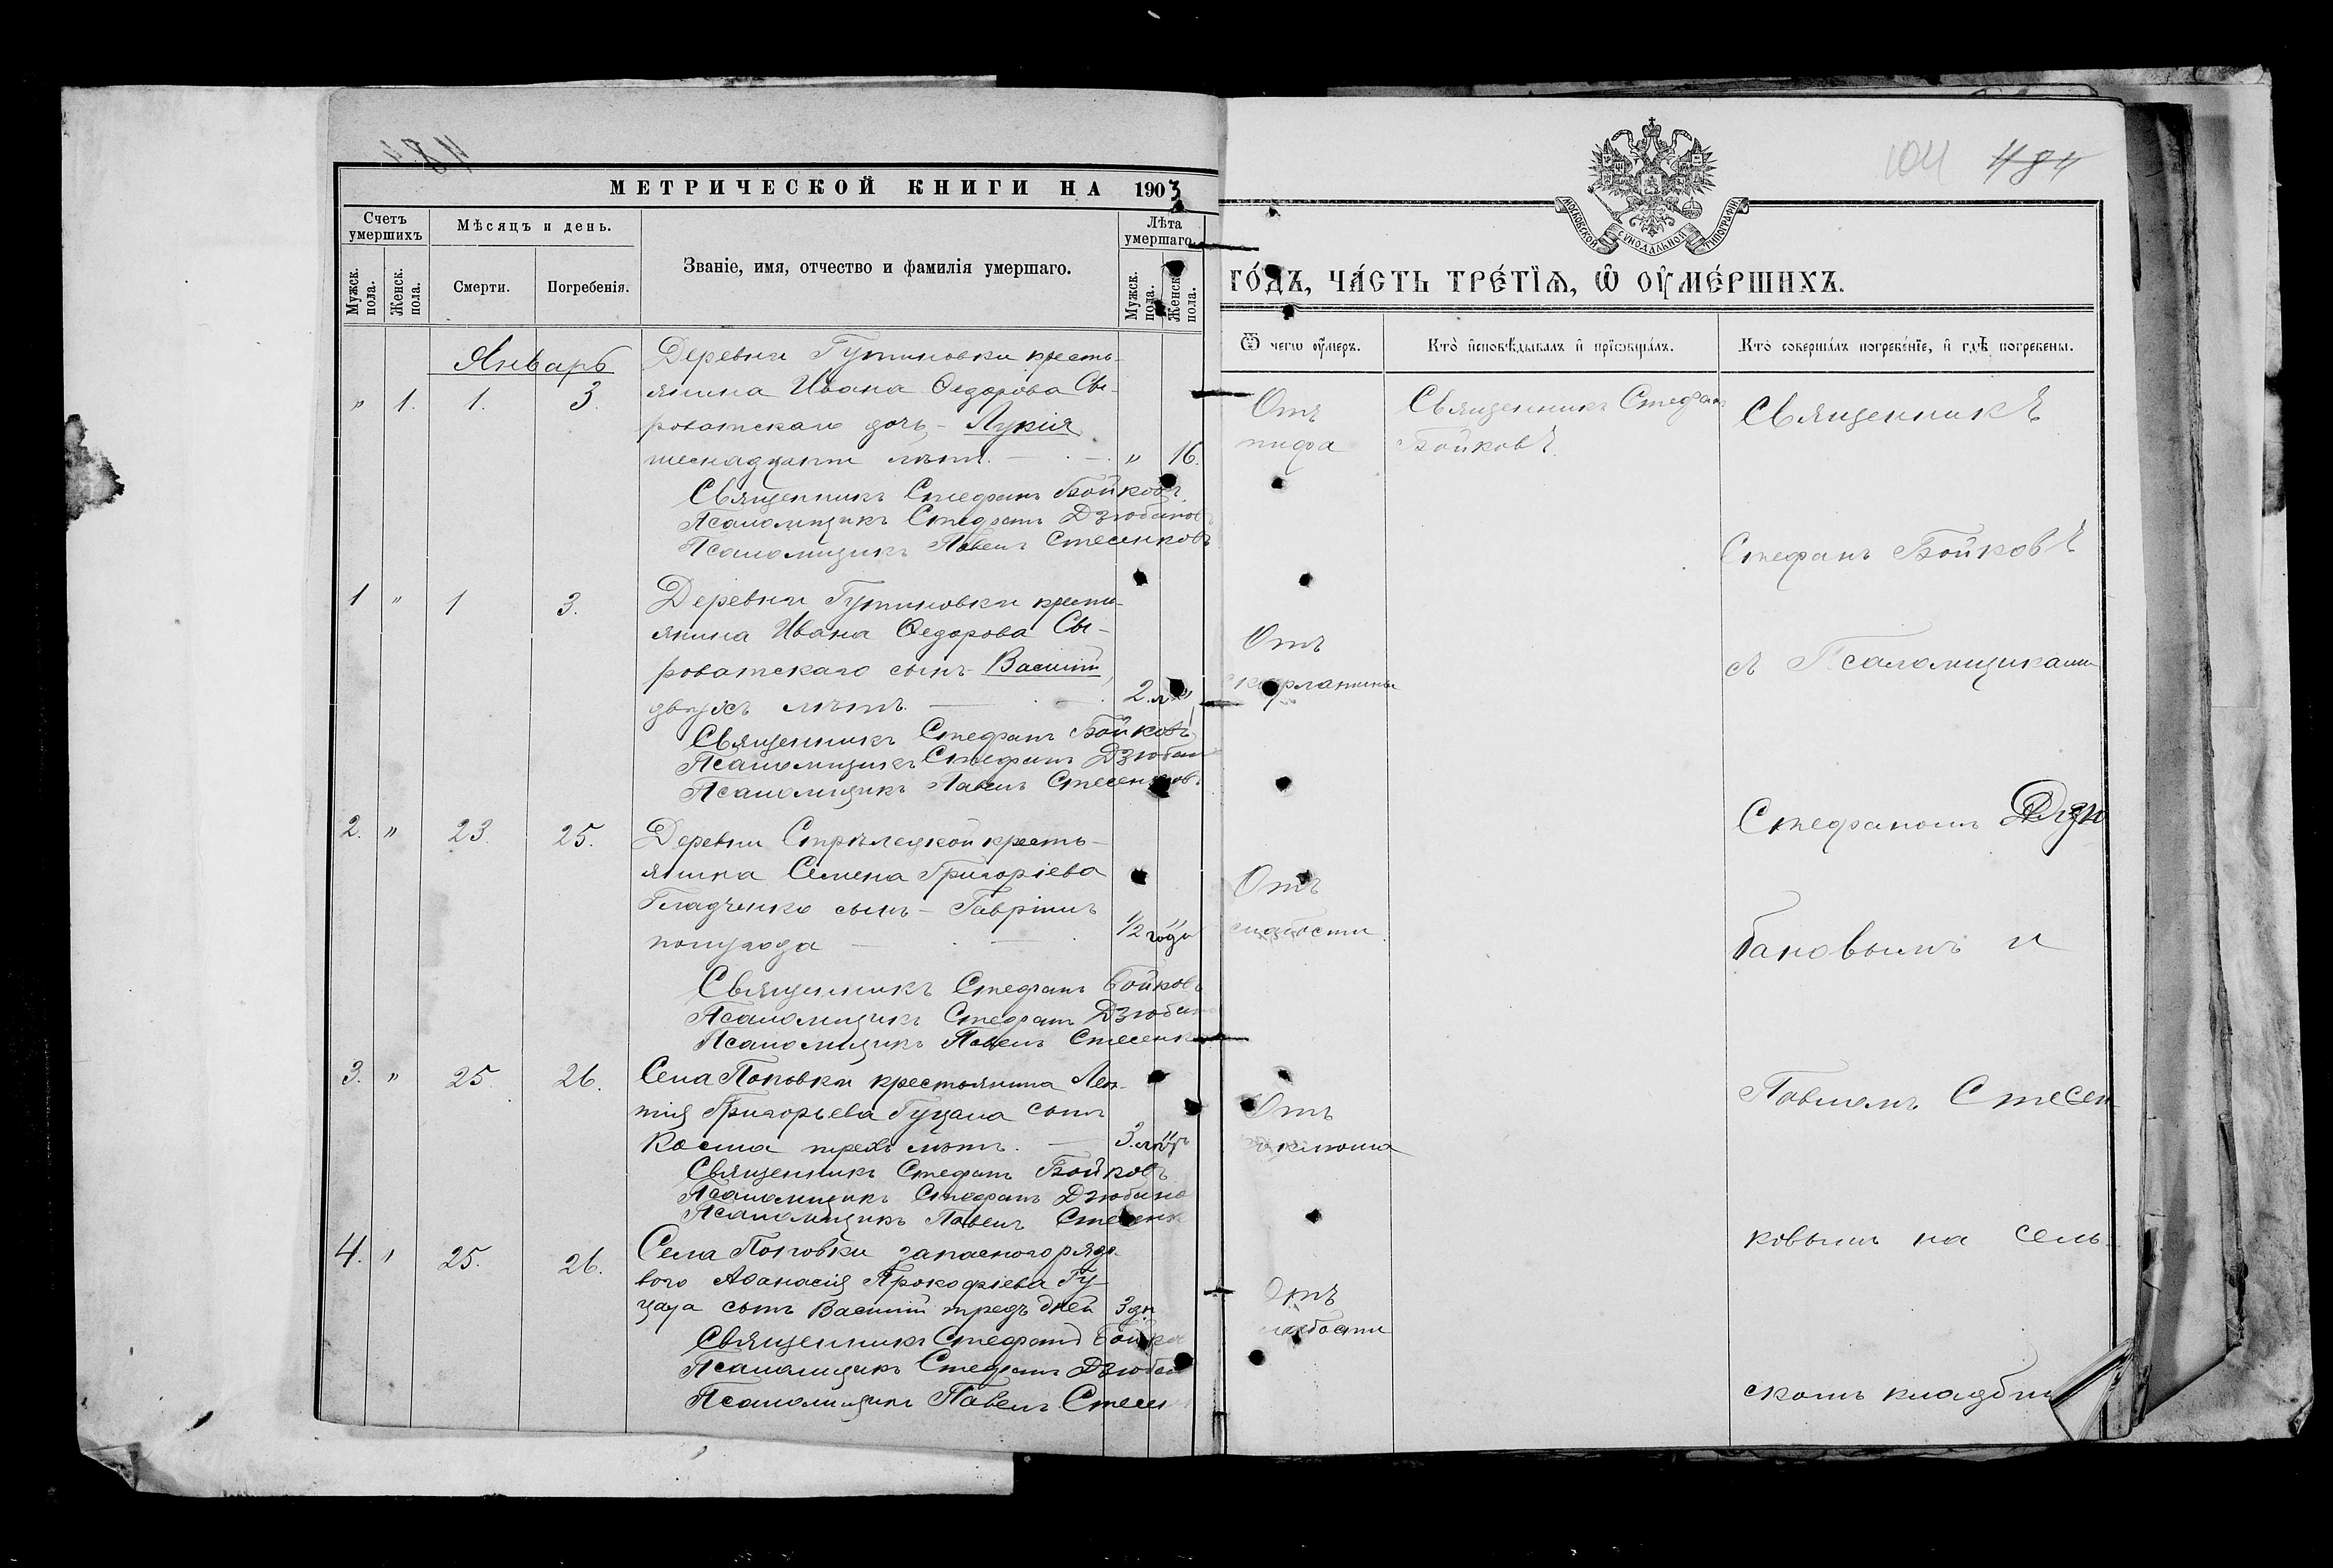 104 484
МЕТРИЧЕСКОЙ КНИГИ НА 1903
Счетъ умершихъ
Мѣсяцъ и день.
Званіе, имя, отчество и фамилія умершаго.
Лѣта умершаго.
Мужск. пола.
Женск. пола.
Смерти.
Погребенія.
Мужск. пола.
Женск. пола.
Январь
" 1. 1. 3.
Деревни Гутиновки кресть-
янина Ивана Ѳедорова Сы-
роватскаго дочь, - Лукія
шеснадцати лѣтъ. " 16.
Священникъ Стефанъ Бойковъ
Псаломщикъ Стефанъ Дзюбановъ
Псаломщикъ Павелъ Стесенковъ
1 " 1 3.
Деревни Гутиновки кресть-
янина Ивана Ѳедорова Сы-
роватскаго сынъ - Василій,
двухъ лѣтъ. 2.
Священникъ Стефанъ Бойковъ
Псаломщикъ Стефанъ Дзюбан
Псаломщикъ Павелъ Стесенковъ
2. " 23. 25.
Деревни Стрѣлецкой кресть-
янина Семена Григоріева
Гладченко сынъ - Гавріилъ
полугода 1/2 года
Священникъ Стефанъ Бойковъ
Псаломщикъ Стефанъ Дзюбано
Псаломщикъ Павелъ Стесенко
3. " 25. 26.
Села Поповки крестьянина Леон-
тія Григорьева Гуцала сынъ
Косма трехъ лѣтъ. 3.
Священникъ Стефанъ Бойковъ
Псаломщикъ Стефанъ Дзюбано
Псаломщикъ Павелъ Стесенк
4. " 25. 26.
Села Поповки запаснаго рядо-
вого Аѳанасія Прокофіева Гу-
цала сынъ Василій трехъ дней 3 дн
Священникъ Стефанъ Бойко
Псаломщикъ Стефанъ Дзюбан
Псаломщикъ Павелъ Стесен
МОСКОВСКОЙ СѴНОДАЛЬНОЙ ТИПОГРАФІИ
ГО́ДЪ, ЧА́СТЬ ТРЕ́ТЇѦ, Ѡ҆ ОУ҆МЕ́РШИХЪ.
Ѿ чегѡ оу҆́меръ.
Кто̀ и҆сповѣ́дывалъ и҆ прїѡбща́лъ.
Кто̀ соверша́лъ погребе́нїе, и҆ гдѣ̀ погребены.
Отъ
тифа
Священникъ Стефанъ
Бойковъ.
Священникъ
Стефанъ Бойковъ
Отъ
скарлатины
съ Псаломщиками
Стефаномъ Дзю
Отъ
слабости
бановымъ и
Отъ
коклюша
Павломъ Стесен
ковымъ на сель-
Отъ
слабости
скомъ кладби